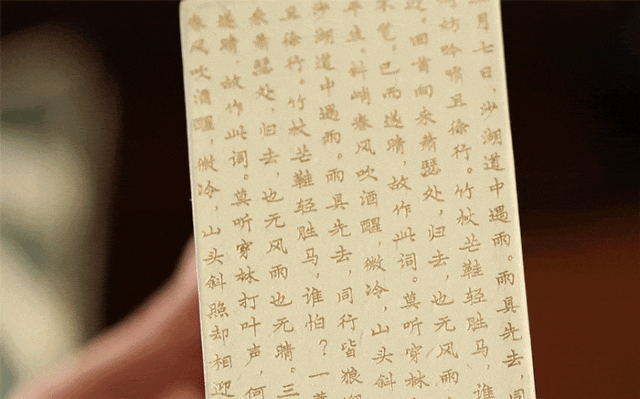 月七日，沙湖道中遇雨。雨具先去，同
妨吟啸且徐行。竹杖芒鞋轻胜马，谁
迎。回首向来萧瑟处，归去，也无风雨
觉，已而遂晴，故作此词。莫听穿林
平生。料峭春风吹酒醒，微冷，山头斜
沙湖道中遇雨。雨具先去，同行皆狼
且徐行。竹杖芒鞋轻胜马，谁怕？一蓑
来萧瑟处，归去，也无风雨也无晴。三
遂晴，故作此词。莫听穿林打叶声，何
春风吹酒醒，微冷，山头斜照却相迎